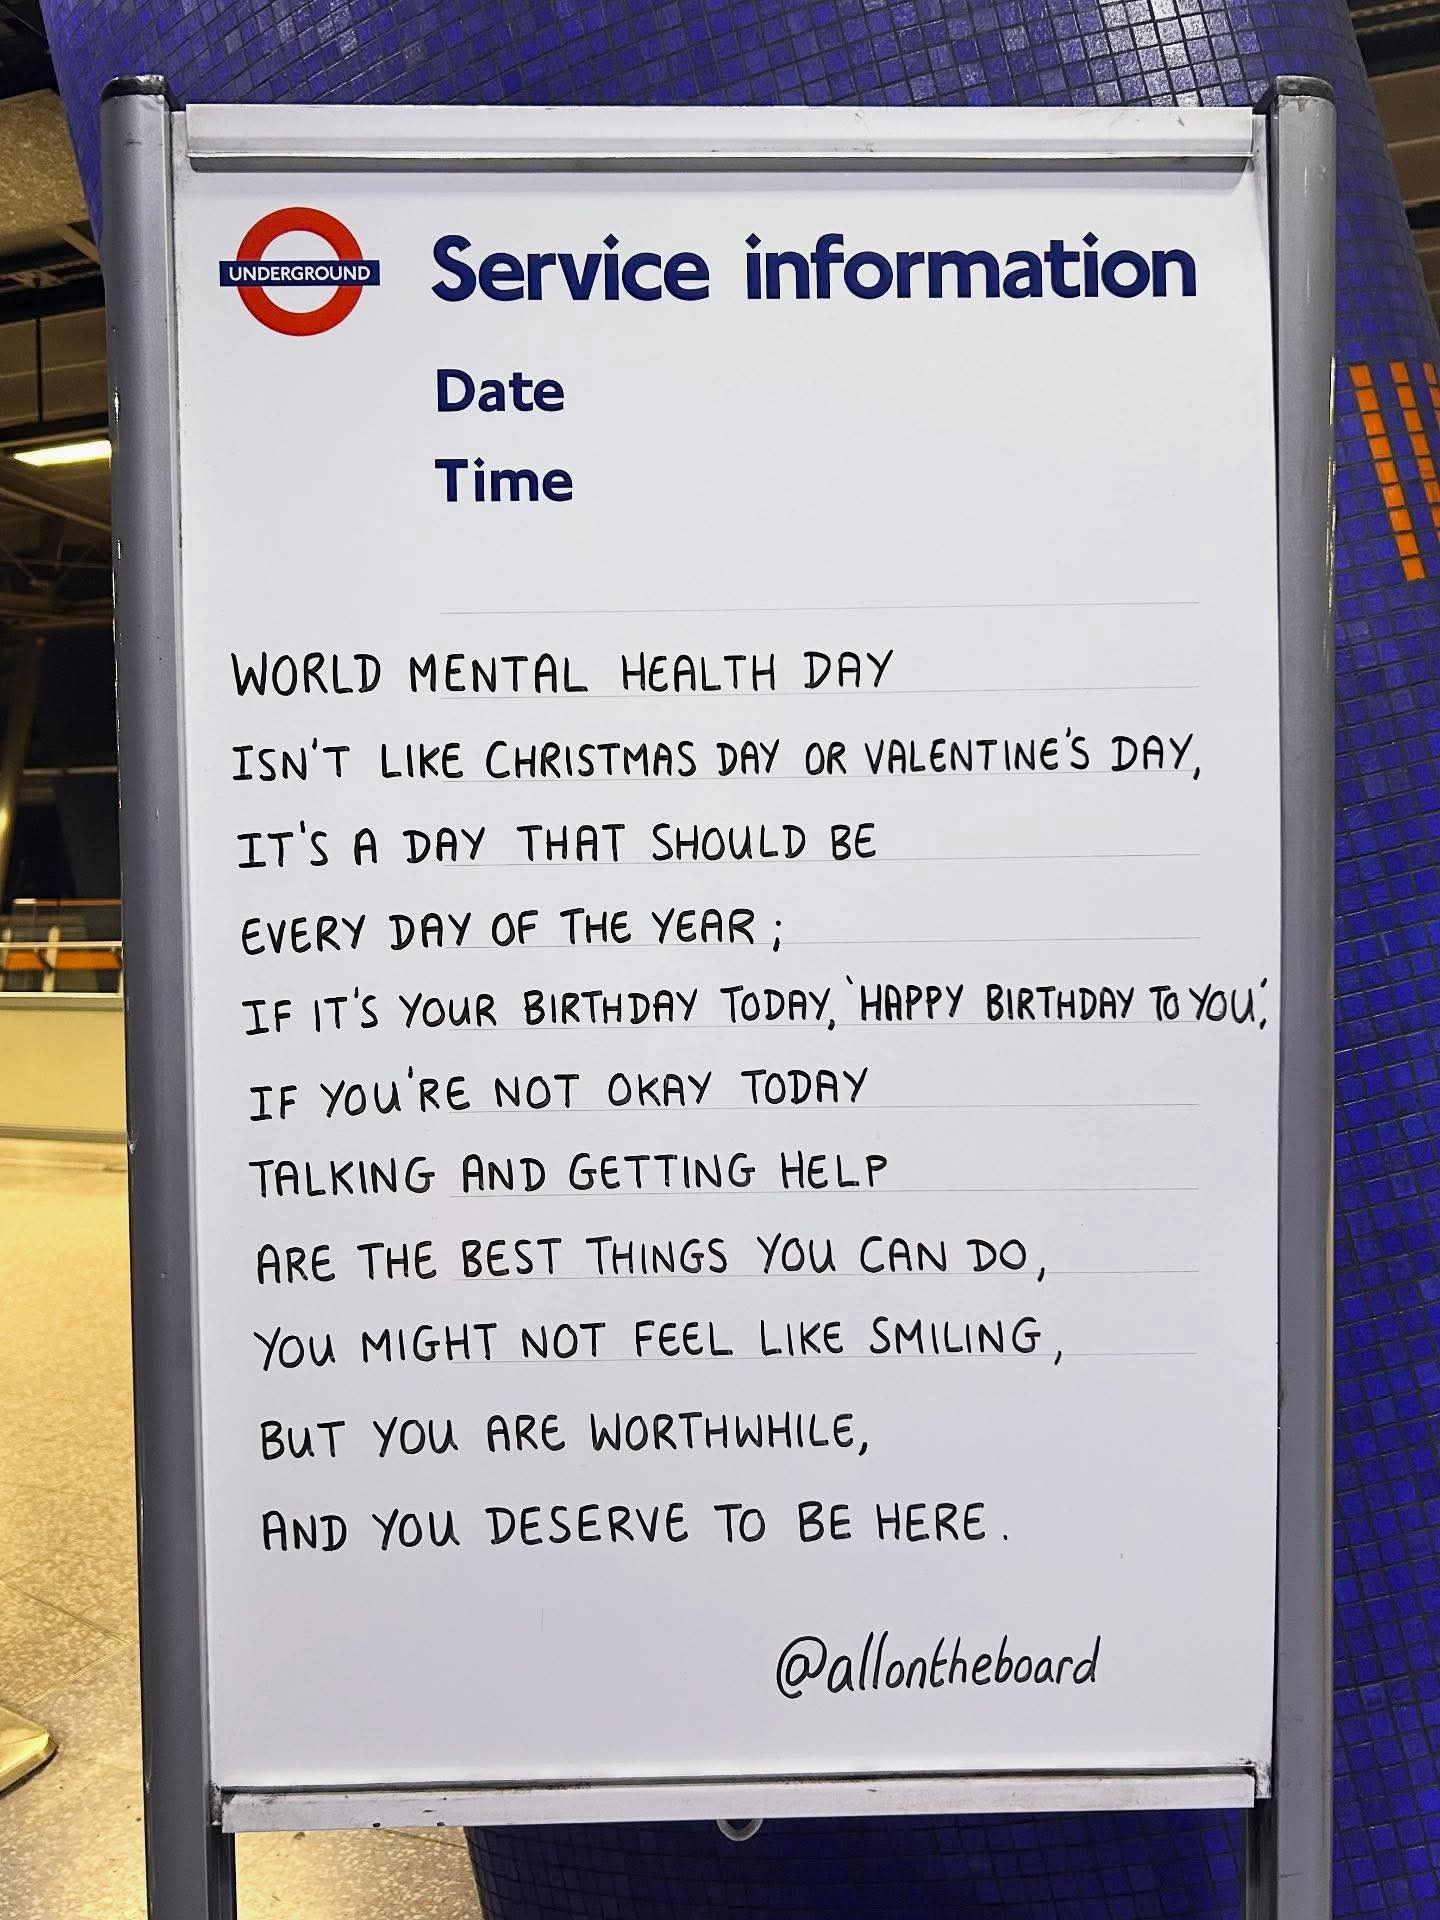 UNDERGROUND
Service information
Date
Time
WORLD MENTAL HEALTH DAY
ISN'T LIKE CHRISTMAS DAY OR VALENTINE'S DAY,
IT'S A DAY THAT SHOULD BE
EVERY DAY OF THE YEAR;
IF IT'S YOUR BIRTHDAY TODAY, 'HAPPY BIRTHDAY TO YOU',
IF YOU'RE NOT OKAY TODAY
TALKING AND GETTING HELP
ARE THE BEST THINGS YOU CAN DO,
YOU MIGHT NOT FEEL LIKE SMILING,
BUT YOU ARE WORTHWHILE,
AND YOU DESERVE TO BE HERE.
@allontheboard